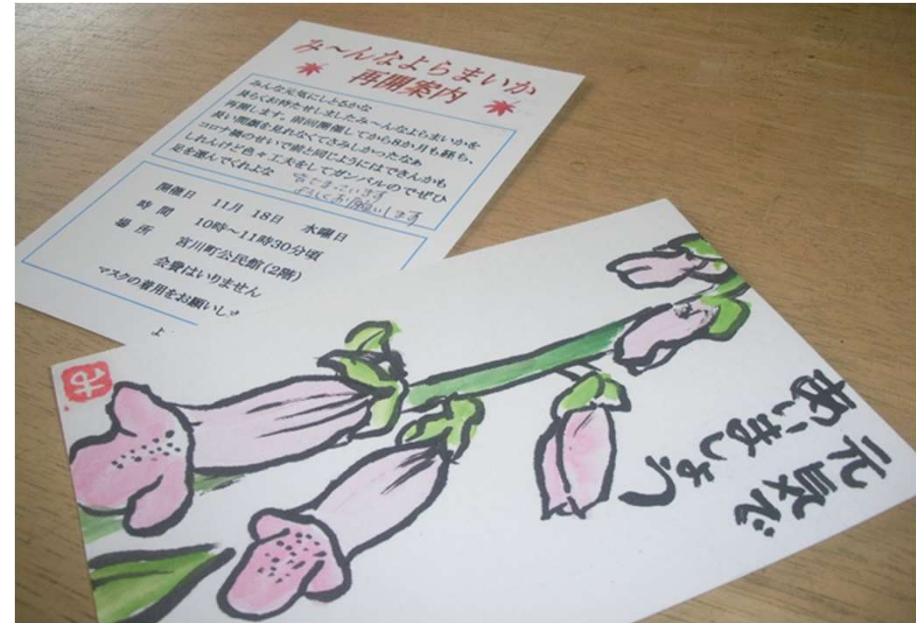 み～んなよらまいか
再開案内
みんな元気にしとるかな
長らくお待たせしましたみ～んなよらまいかを
再開します。前回開催してから8か月も経ち、
長い間顔を見れなくてさみしかったなぁ
コロナ禍のせいで前と同じようにはできんかも
しれんけど色々工夫をしてガンバルのでぜひ
足を運んでくれよな
よろしくお願いします
開催日 11月 18日 水曜日
時間 10時～11時30分頃
場所 宮川町公民館(2階)
会費はいりません
マスクの着用をお願いし
よ
元気で
あいましょう
み